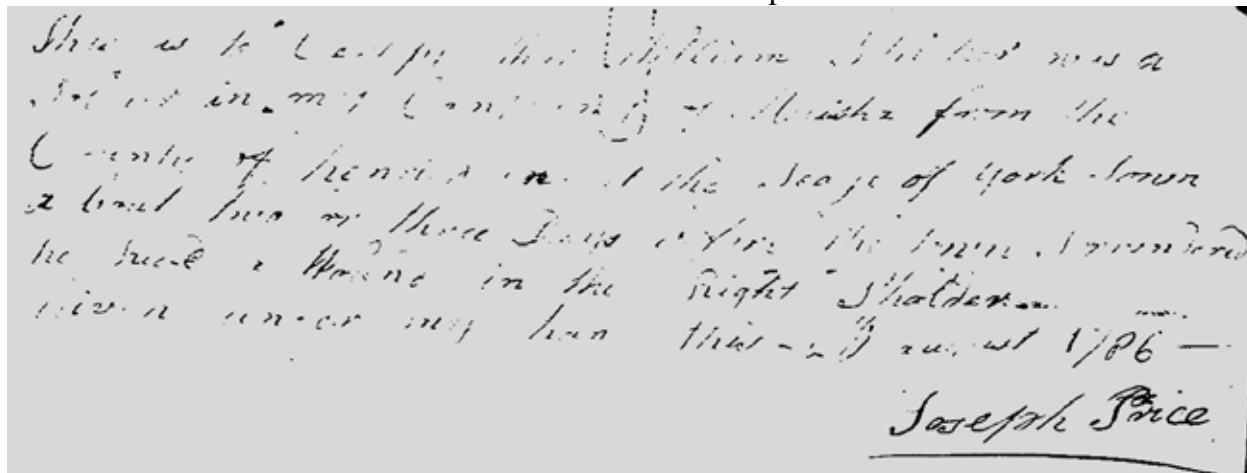 This is to Certify that William was a
in my Company of Militia from the
County of at the Seage of York Town
about two or three Days before the town Surrendered
he a Wound in the Right Sholder
Given under my han this august 1786 —
Joseph Price